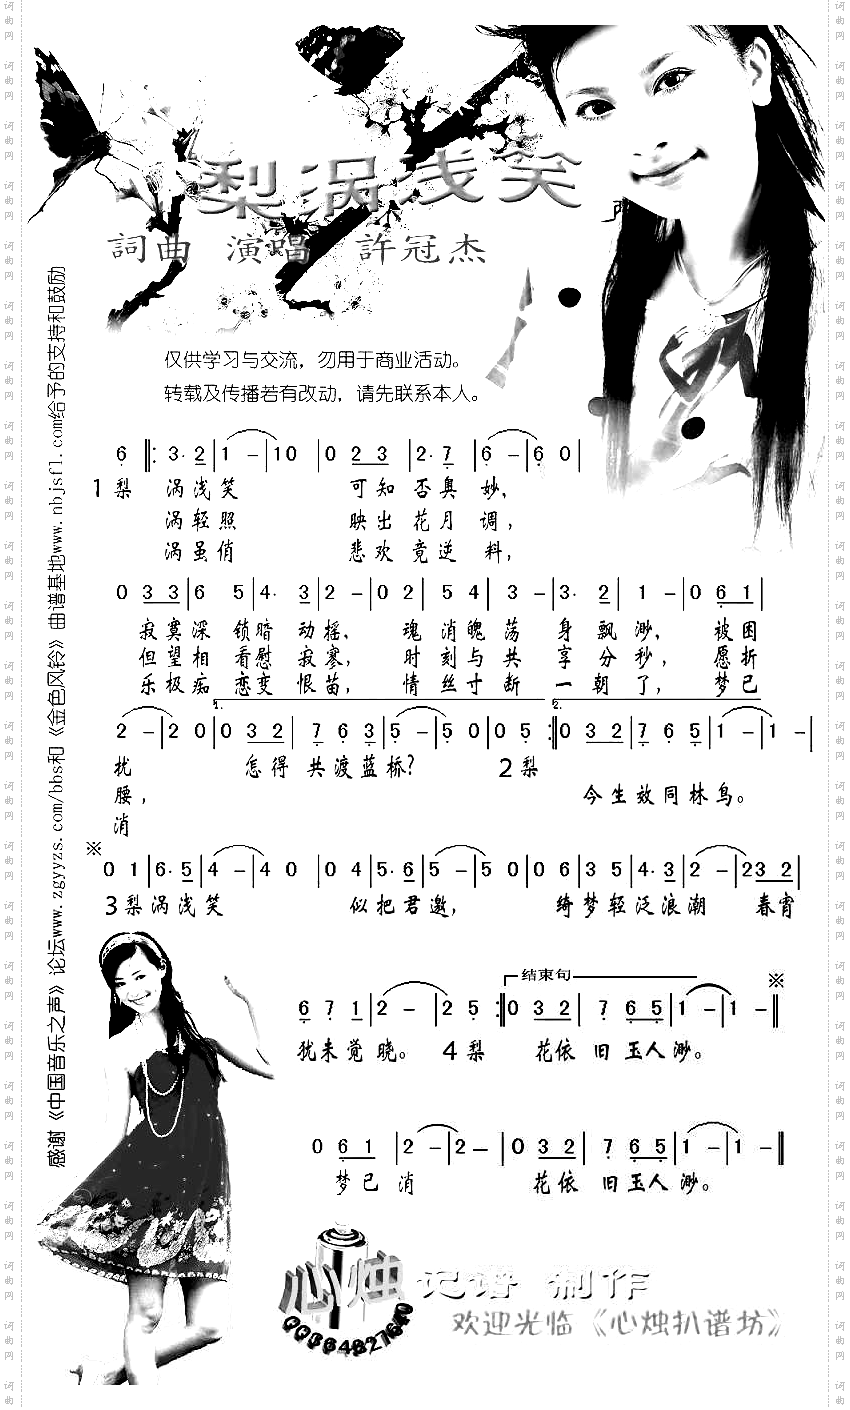 梨涡浅笑
詞曲 演唱 許冠杰
仅供学习与交流，勿用于商业活动。
转载及传播若有改动，请先联系本人。
6 ‖: 3· 2 | 1 － | 1 0 | 0 2 3 | 2· 7 | 6 － | 6 0 |
1梨 涡浅笑 可知否奥妙，
涡轻照 映出花月调，
涡虽俏 悲欢竟逆料，
0 3 3 | 6 5 | 4· 3 | 2 － | 0 2 | 5 4 | 3 － | 3· 2 | 1 － | 0 6 1 |
寂寞深锁暗动摇， 魂消魄荡身飘渺， 被困
但望相看慰寂寥， 时刻与共享分秒， 愿折
乐极痴恋变恨苗， 情丝寸断一朝了， 梦已
1. 2.
2 － | 2 0 | 0 3 2 | 7 6 3 | 5 － | 5 0 | 0 5 :‖ 0 3 2 | 7 6 5 | 1 － | 1 － |
扰 怎得共渡蓝桥? 2梨
腰， 今生效同林鸟。
消
※
0 1 | 6· 5 | 4 － | 4 0 | 0 4 | 5· 6 | 5 － | 5 0 | 0 6 | 3 5 | 4· 3 | 2 － | 2 3 2 |
3梨涡浅笑 似把君邀， 绮梦轻泛浪潮 春宵
结束句 ※
6 7 1 | 2 － | 2 5 :‖ 0 3 2 | 7 6 5 | 1 － | 1 － ‖
犹未觉晓。 4梨 花依旧玉人渺。
0 6 1 | 2 － | 2 － | 0 3 2 | 7 6 5 | 1 － | 1 － ‖
梦已消 花依旧玉人渺。
心烛 记谱 制作
QQ364827640
欢迎光临《心烛扒谱坊》
感谢《中国音乐之声》论坛www.zgyyzs.com/bbs和《金色风铃》曲谱基地www.nbjsfl.com给予的支持和鼓励
词曲网